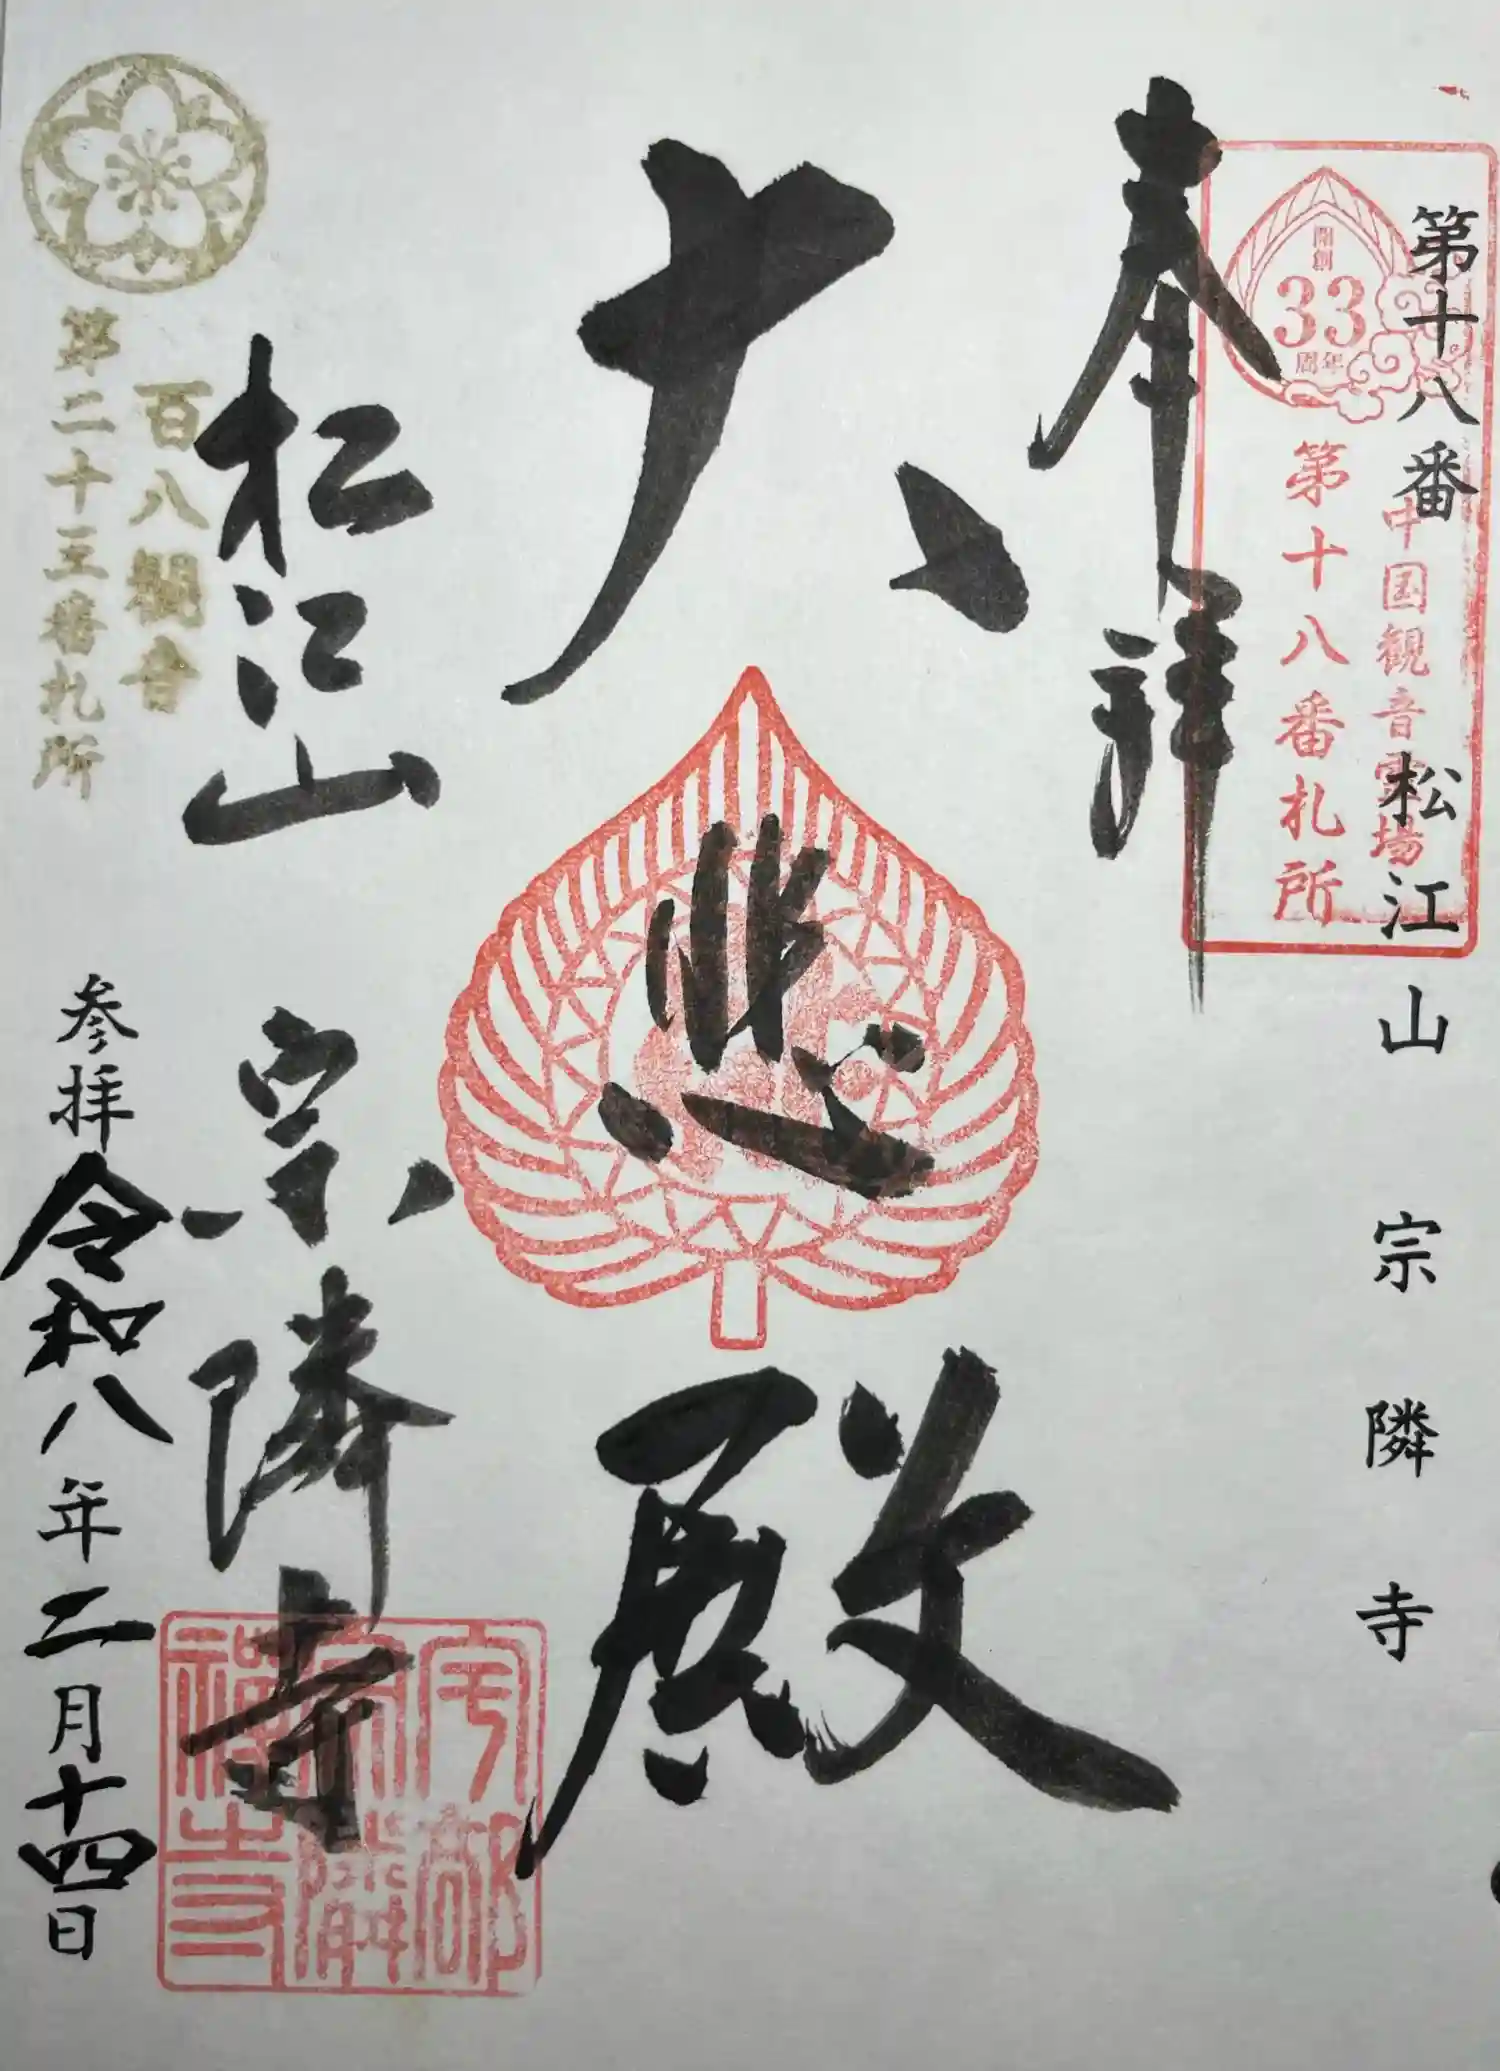 第十八番 松江山 宗隣寺
開創
33
周年
中国観音霊場
第十八番札所
奉拝
大悲殿
松江山 宗隣寺
宇部
宗隣
禅寺
百八観音
第二十三番札所
参拝 令和八年二月十四日